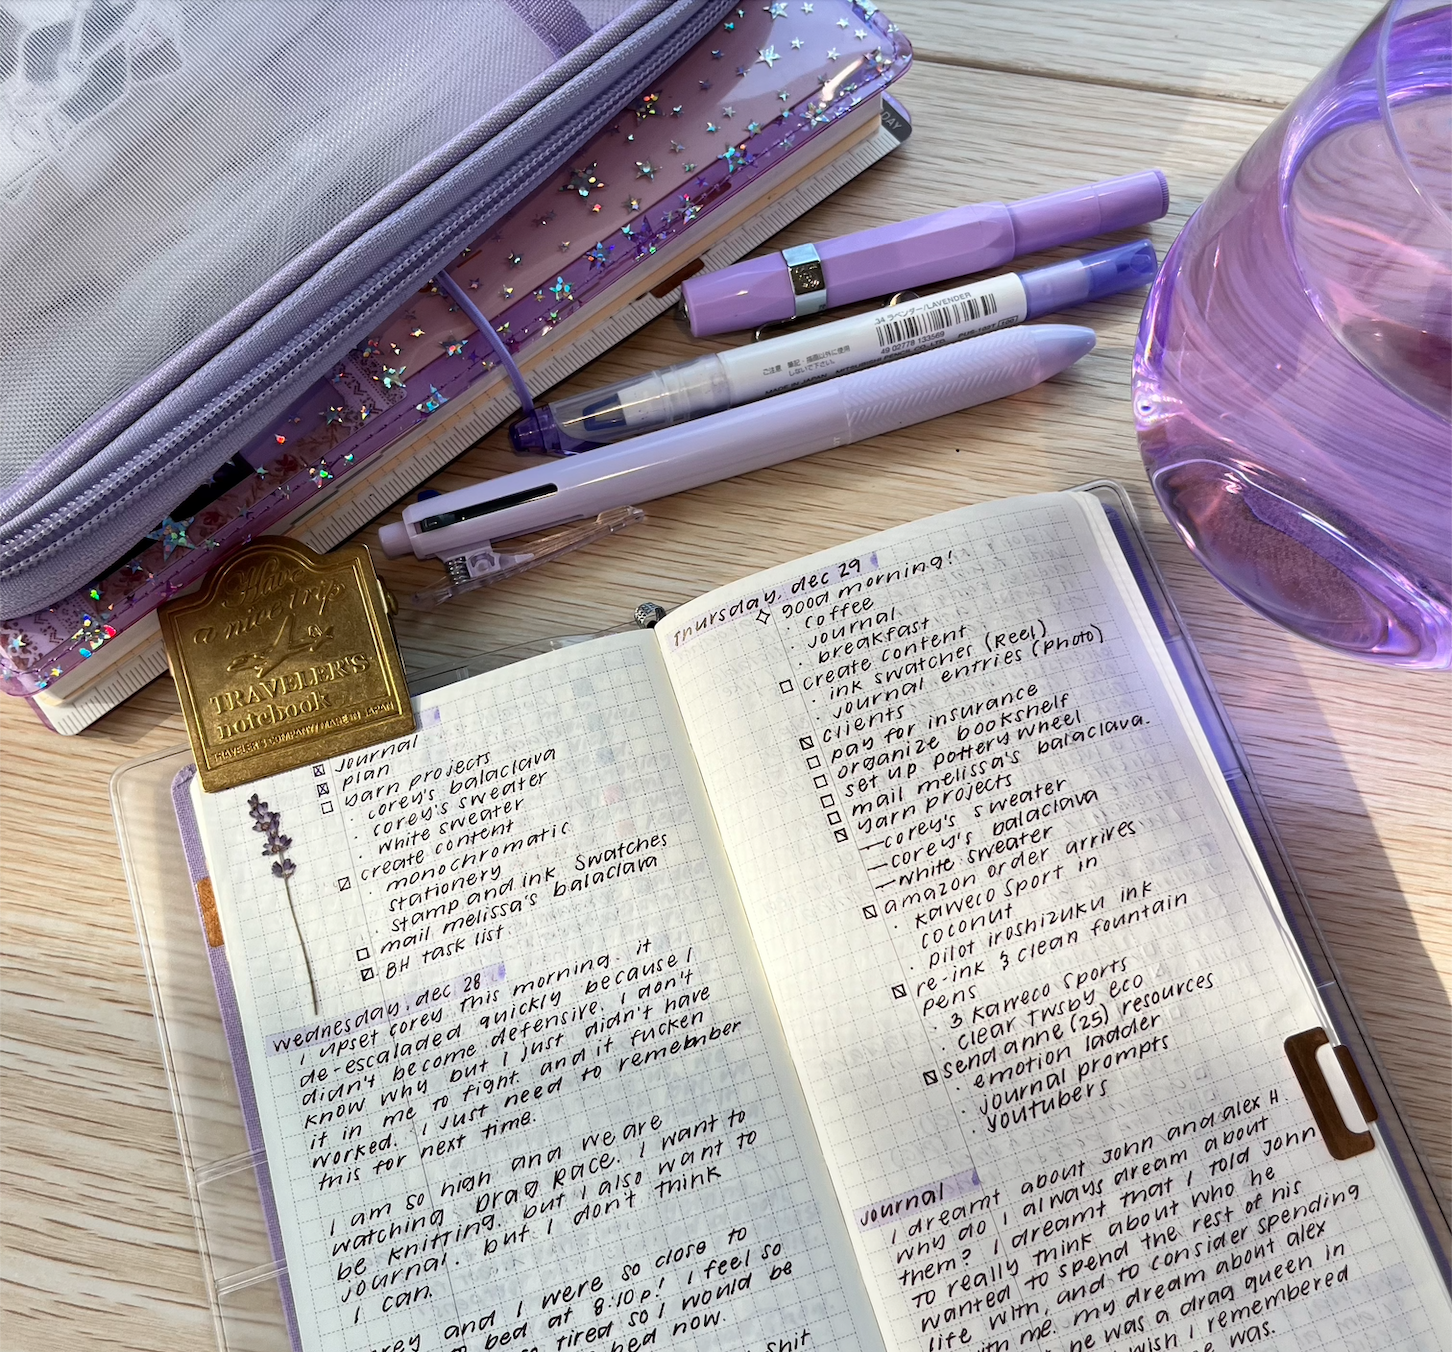 DAY
34 ラベンダー/LAVENDER
49 02778 133569
ご注意 筆記・描画以外に使用
しないで下さい。
MADE IN JAPAN
Have
a nice trip
TRAVELER'S
notebook
TRAVELER'S COMPANY/MADE IN JAPAN
journal
plan
yarn projects
· corey's balaclava
· corey's sweater
· white sweater
create content
· monochromatic
stationery
· stamp and ink swatches
mail melissa's balaclava
BH task list
wednesday, dec 28
I upset corey this morning. it
de-escaladed quickly because I
didn't become defensive. I don't
know why but I just didn't have
it in me to fight. and it fucken
worked. I just need to remember
this for next time.
I am so high and we are
watching Drag Race. I want to
be knitting. but I also want to
journal. but I don't think
I can.
and I were so close to
bed at 8:10p! I feel so
tired so I would be
bed now.
shit
thursday, dec 29
good morning!
· coffee
· journal
· breakfast
create content
· ink swatches (Reel)
· journal entries (photo)
clients
pay for insurance
organize bookshelf
set up pottery wheel
mail melissa's balaclava.
yarn projects
—corey's sweater
—corey's balaclava
—white sweater
amazon order arrives
· kaweco sport in
coconut
· pilot iroshizuku ink
re-ink & clean fountain
pens
· 3 kaweco sports
· clear twsby eco
send anne (25) resources
· emotion ladder
· journal prompts
· youtubers
journal
I dreamt about John and alex H
why do I always dream about
them? I dreamt that I told John
to really think about who he
wanted to spend the rest of his
life with, and to consider spending
with me. my dream about alex
he was a drag queen in
wish I remembered
he was.